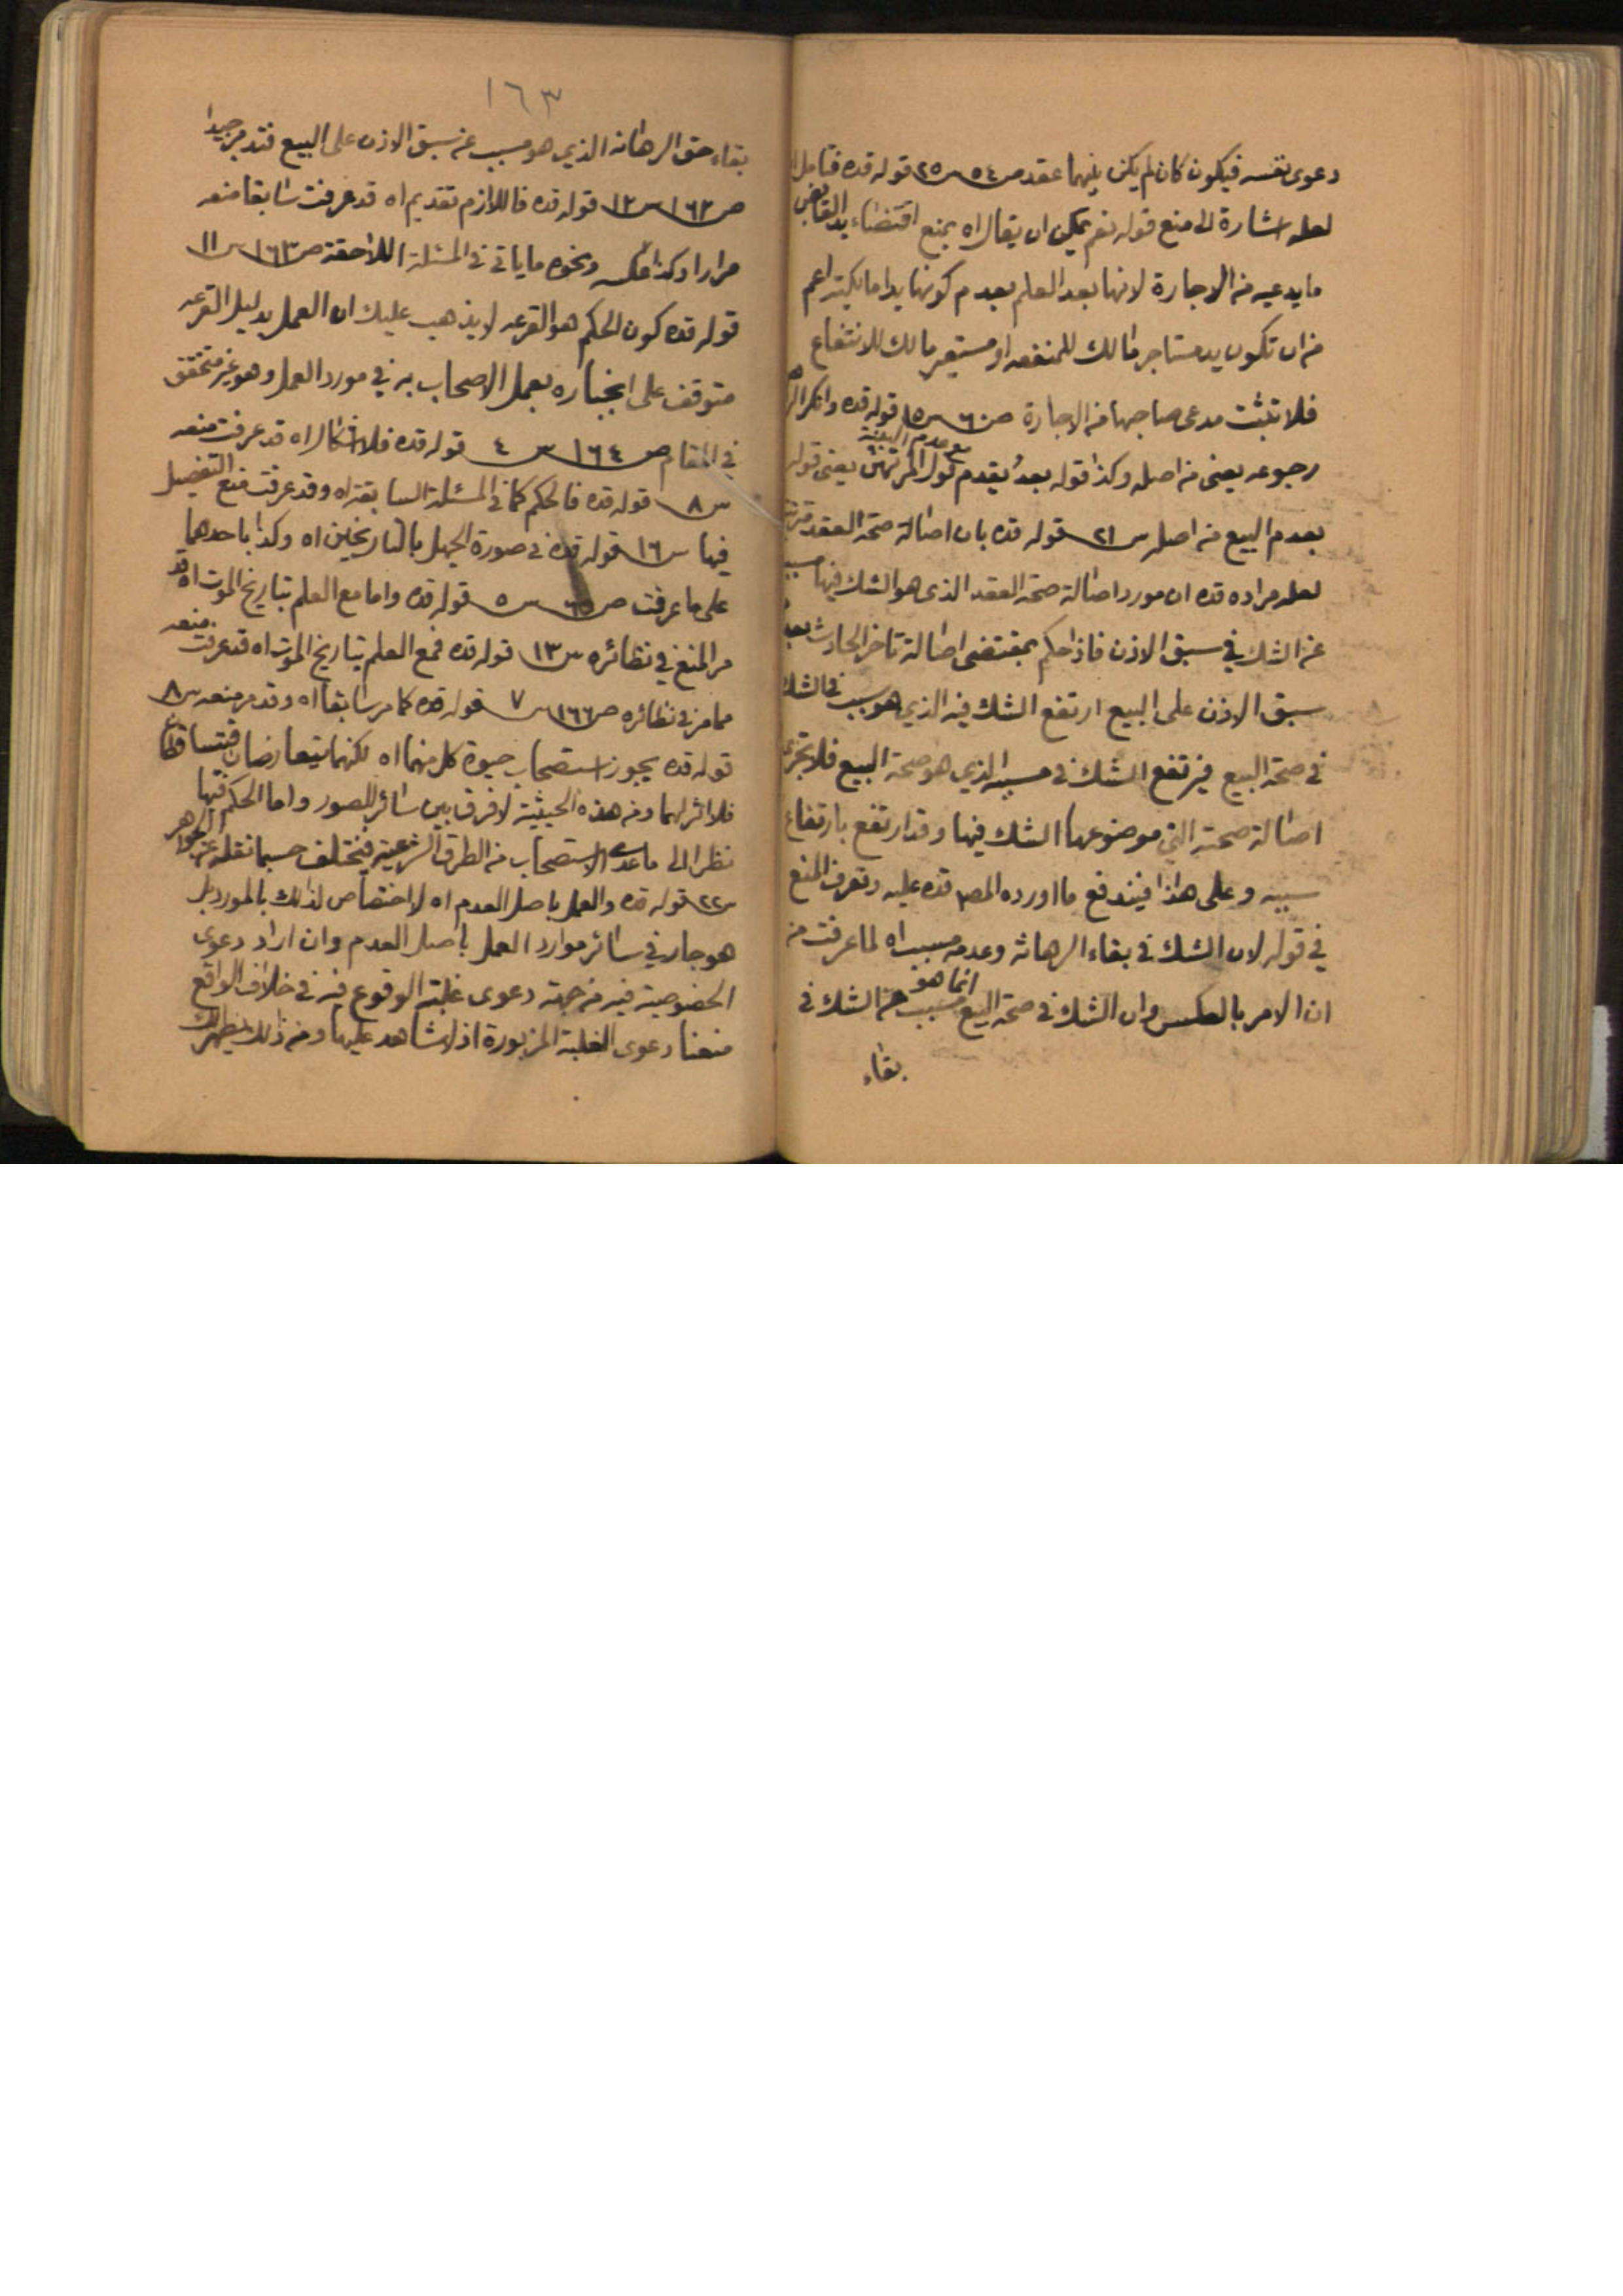 دعوى نفسه فيكون كان لم يكن بينهما عقد ص ٥٤ س ٢٥ قوله قده فتامل
لعله اشارة الى منع قوله نعم يمكن ان يقال اه بمنع اقتضاء يد القابض
ما يدعيه من الاجارة لانها بعد العلم بعدم كونها يدا مالكية اعم
من ان تكون يد مستاجر مالك للمنفعه او مستعير مالك للانتفاع
فلا تثبت مدعى صاحبها من الاجارة ص ٦٠ س ١٥ قوله قده وانكر
رجوعه يعنى من اصله وكذا قوله بعد يقدم قول المرتهن مع عدم البينة يعنى قوله
بعدم البيع من اصله س ٢١ قوله قده بان اصالة صحة العقد
لعله مراده قده ان مورد اصالة صحة العقد الذى هو الشك فيها مسبب
عن الشك في سبق الاذن فاذا حكم بمقتضى اصالة تاخر الحادث بعدم
سبق الاذن على البيع ارتفع الشك فيه الذي هو سبب في الشك
في صحة البيع فيرتفع الشك في مسببه الذي هو صحة البيع فلا تجرى
اصالة صحته التي موضوعها الشك فيها وقد ارتفع بارتفاع
سببه وعلى هذا فيندفع ما اورده المصـ قده عليه وتعرف المنع
في قوله لان الشك في بقاء الرهانة وعدمه مسبب اه لما عرفت من
ان الامر بالعكس وان الشك في صحة البيع انما هو مسبب عن الشك في
بقاء
١٦٣
بقاء حق الرهانه الذي هو مسبب عن سبق الاذن على البيع فتدبر جيدا
ص ١٦٢ س ١٢ قوله قده فاللازم تقديم اه قد عرفت سابقا منعه
مرارا وكذا عكسه ونحوه ما ياتى في المسئلة اللاحقة ص ١٦٣ س ١١
قوله قده كون الحكم هو القرعه لا يذهب عليك ان العمل بدليل القرعه
متوقف على انجباره بعمل الاصحاب به في مورد العمل وهو غير متحقق
في المقام ص ١٦٤ س ٤ قوله قده فلا اشكال اه قد عرفت منعه
س ٨ قوله قده فالحكم كما في المسئلة السابقة اه وقد عرفت منع التفصيل
فيها س ١٦ قوله قده في صورة الجهل بالتاريخين اه وكذا باحدهما
على ما عرفت ص ٦٥ س ٥ قوله قده واما مع العلم بتاريخ الموت اه قد
مر المنع في نظائره س ١٣ قوله قده فمع العلم بتاريخ الموت اه قد عرفت منعه
مما مر في نظائره ص ١٦٦ س ٧ قوله قده كما مر سابقا اه وقد مر منعه س ٨
قوله قده يجوز استصحاب حيوة كل منهما اه لكنهما يتعارضان فتساقطا
فلا اثر لهما ومن هذه الحيثية لا فرق بين سائر الصور واما الحكم فيها
نظرا الى ما عدى الاستصحاب من الطرق الشرعية فيختلف حسبما نقله عن الجواهر
س ٢٢ قوله قده والعمل باصل العدم اه لا اختصاص لذلك بالمورد بل
هو جار في سائر موارد العمل باصل العدم وان اراد دعوى
الخصوصية فيه من جهة دعوى غلبة الوقوع فيه في خلاف الواقع
منعنا دعوى الغلبة المزبورة اذ لا شاهد عليها ومن ذلك يظهر لك